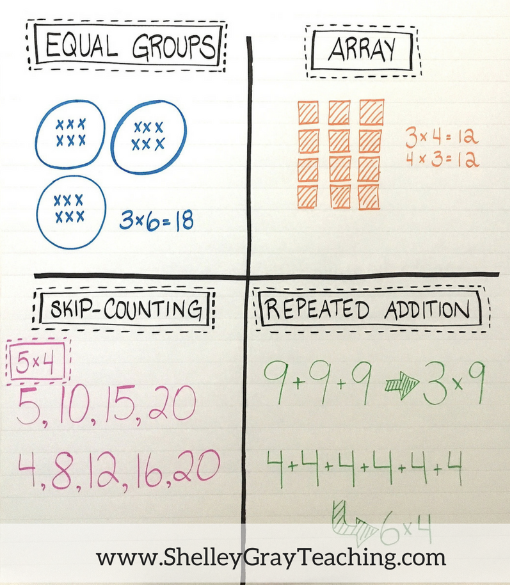 EQUAL GROUPS
xxx xxx
xxx xxx
xxx
xxx
3×6=18
ARRAY
3×4=12
4×3=12
SKIP-COUNTING
5×4
5, 10, 15, 20
4, 8, 12, 16, 20
REPEATED ADDITION
9+9+9 3×9
4+4+4+4+4+4
6×4
www.ShelleyGrayTeaching.com